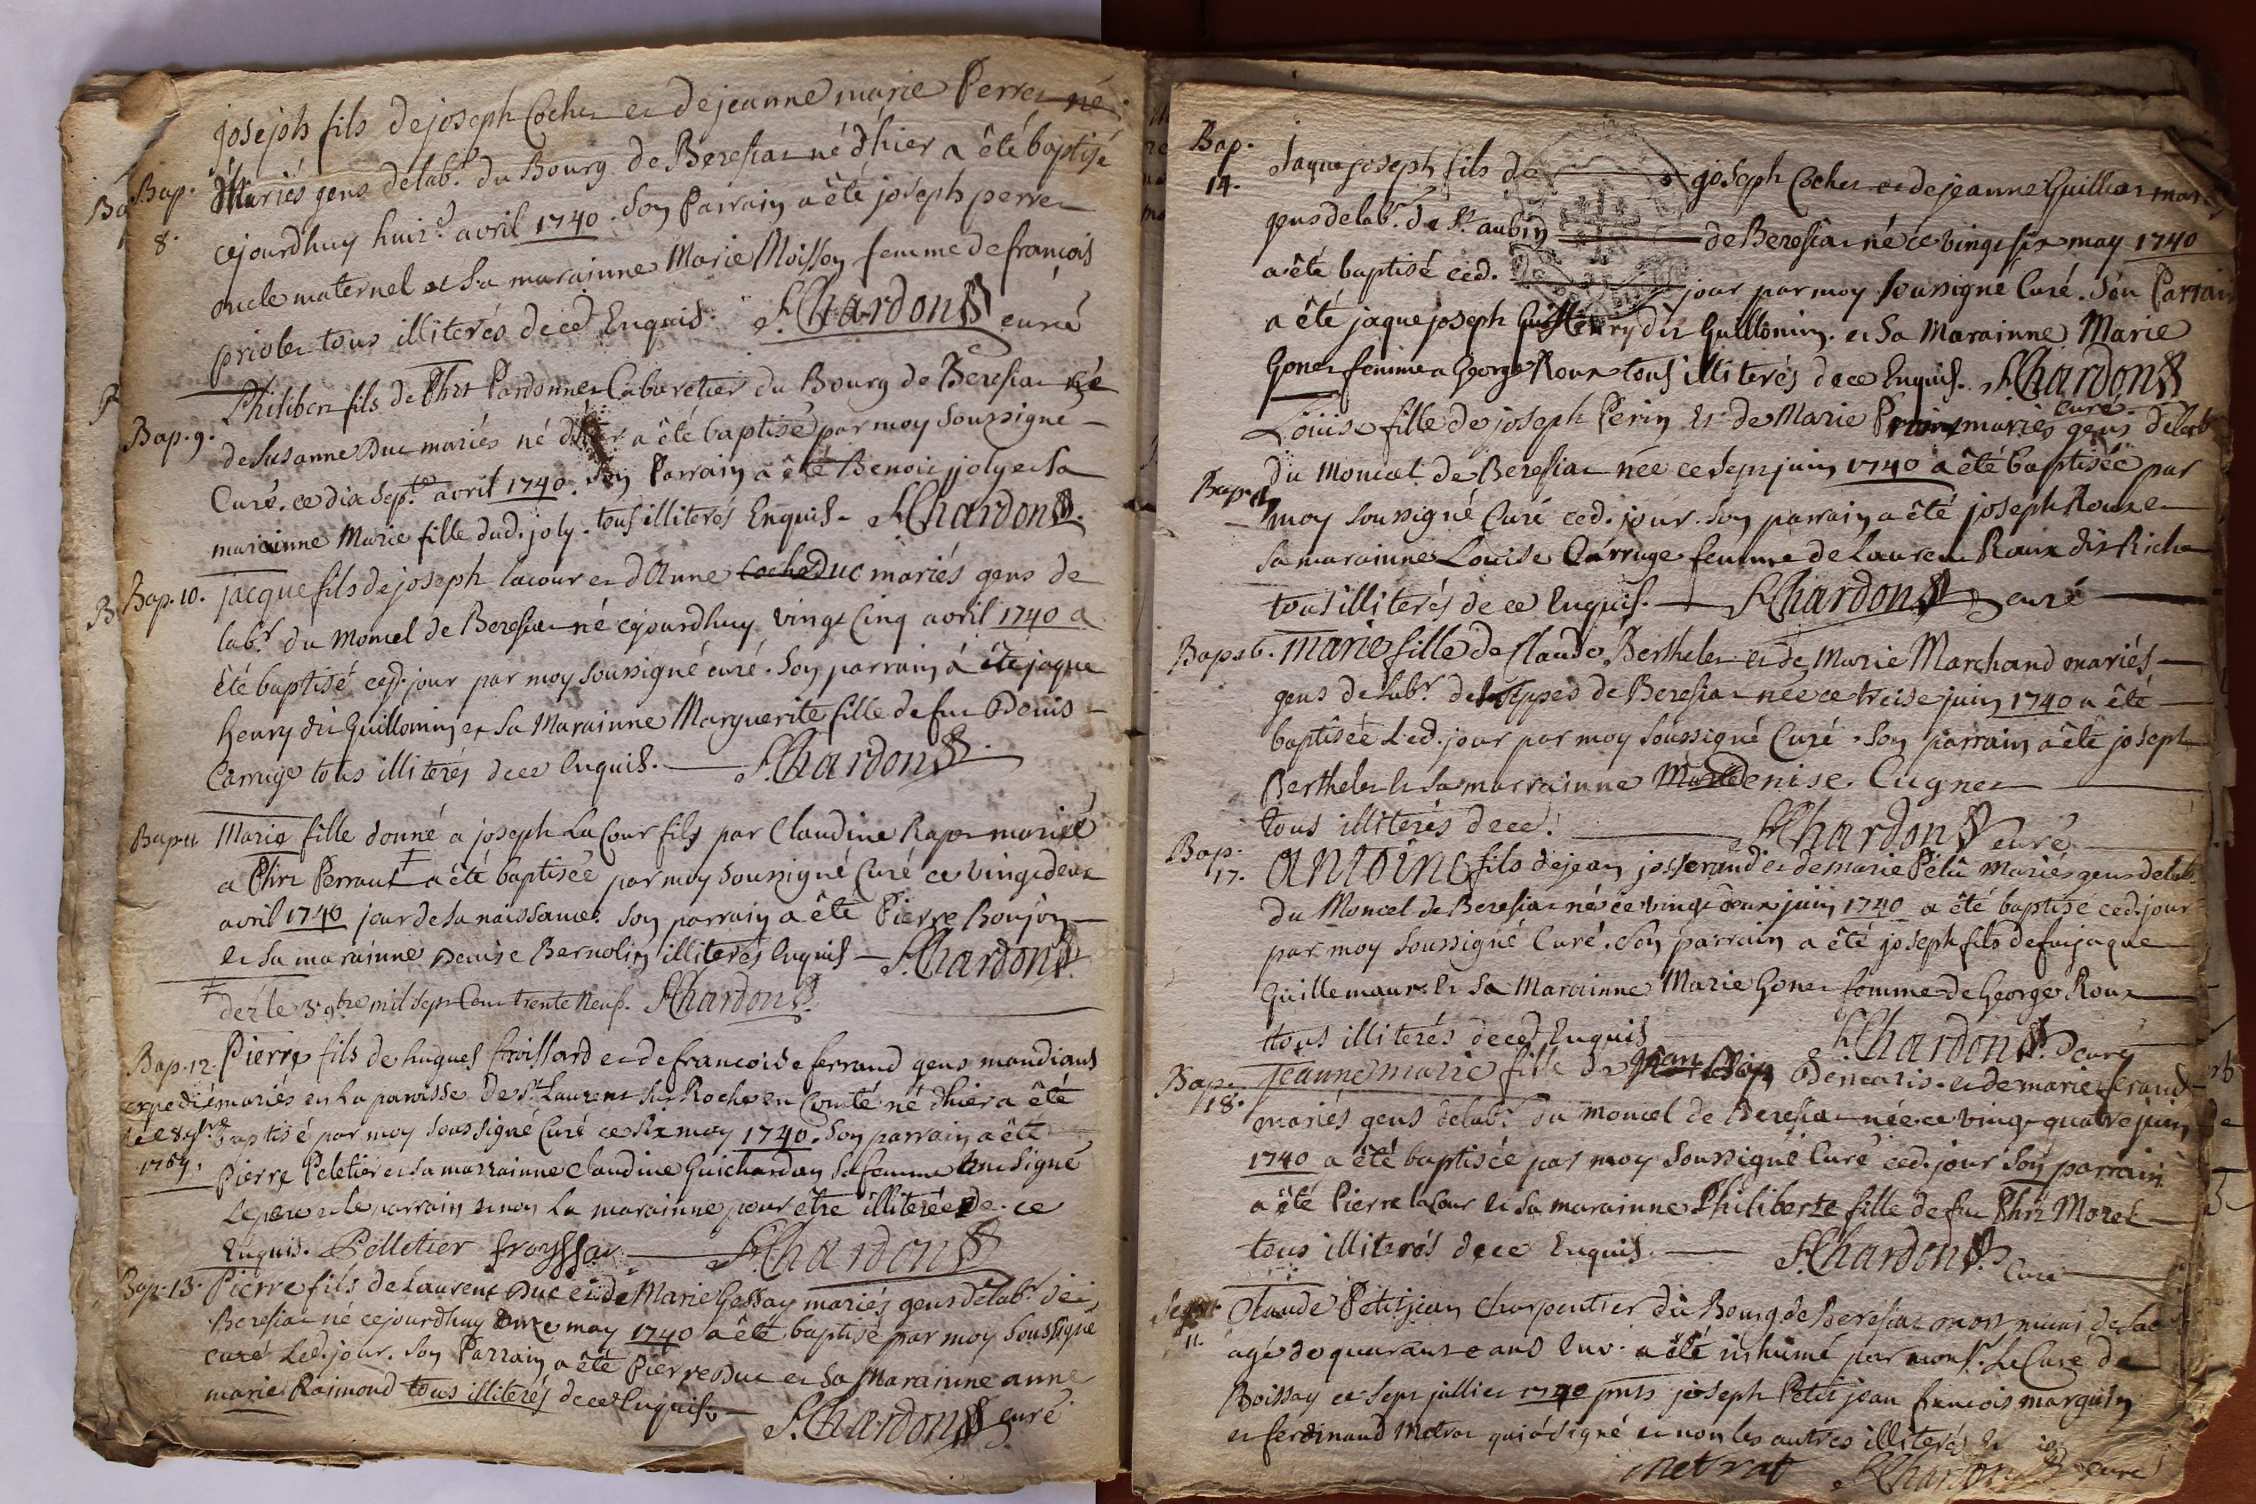 Bap.
8.
joseph fils de joseph Cochet et de jeanne marie Perret
Mariés gens de lab.r du Bourg de Beresiat né d'hier a êté baptisé
cejourdhuy huit.e avril 1740. Son Parrain a êté joseph perret
oncle maternel et Sa marainne Marie Moisson femme de françois
priolet tous illiterés de ced. Enquis. F. Chardon curé
Bap. 9.
Philibert fils de Phrt Pardonnet Cabaretier du Bourg de Beresiat
de Susanne Duc mariés né d'hier a êté baptisé par moy Soussigné
Curé. ce dix sept.e avril 1740. Son Parrain a êté Benoit joly et Sa
marainne Marie fille dud. joly. tous illiterés Enquis. F. Chardon
Bap. 10.
jacque fils de joseph lacour et d'Anne Duc mariés gens de
lab.r du Moncel de Beresiat né cejourdhuy vingt Cinq avril 1740 a
êté baptisé ced. jour par moy Soussigné curé. Son parrain a êté jaque
henry dit Guillomin et Sa Marainne Marguerite fille de fut Denis
Carruge tous illiterés de ce enquis. F. Chardon
Bap. 11
Marie fille donné a joseph La Cour fils par Claudine Rapet mariée
a Phrt Perraut ‡ a êté baptisée par moy Soussigné Curé ce vingt deux
avril 1740 jour de sa naissance. Son parrain a êté Pierre Bonjon
et Sa marainne Denise Bernolin illiterés enquis F. Chardon
‡ dez le 3e 9bre mil Sept Cent trente neuf. F. Chardon
Bap. 12.
Pierre fils de hugues froissard et de francoise ferrand gens mandians
mariés en La paroisse de St. Laurent La Roche en Comté né d'hier a êté
baptisé par moy Soussigné Curé ce Six may 1740. Son parrain a êté
Pierre Peletier et Sa marrainne Claudine Guichardan Sa femme Signé
Le pere et le parrain et non La marainne pour être illiterée de ce
Enquis. Pelletier froyssar F. Chardon
expedié
le 8 9bre
1767.
Bap. 13.
Pierre fils de Laurent Duc et de Marie Gessay mariés gens de lab.r de
Beresiat né cejourdhuy onze may 1740 a êté baptisé par moy Soussigné
curé Led. jour. Son Parrain a êté Pierre Duc et Sa Marainne anne
marie Raimond tous illiterés de ce Enquis. F. Chardon curé
Bap.
14.
Jaque joseph fils de joseph Cochet et de jeanne Guillat mariés
gens de lab.r de St. aubin de Beresiat né ce vingt six may 1740
a êté baptisé ced. jour par moy Soussigné Curé. Son Parrain
a êté jaque joseph henry dit Guillomin. et Sa Marainne Marie
Gonet femme a George Roux tous illiterés de ce Enquis. F. Chardon
curé.
Bap. 15
Loüise fille de joseph Perin et de Marie mariés gens de lab
du Moncel de Beresiat née ce Sept juin 1740 a êté baptisée par
moy Soussigné Curé ced. jour. Son parrain a êté joseph Roux et
Sa marainne Louise Carruge femme de Laurent Roux dit Riche
tous illiterés de ce Enquis. F. Chardon curé
Bap. 16.
Marie fille de Claude Berthelet et de Marie Marchand mariés
gens de lab.r de Beresiat née ce treise juin 1740 a êté
baptisée Led. jour par moy Soussigné Curé. Son parrain a êté joseph
Berthelet et Sa marrainne Denise. Cugnet
tous illiterés de ce. F. Chardon curé
Bap.
17.
Antoine fils de jean josserand et de marie Pélû Mariés gens de lab.
du Moncel de Beresiat né ce vingt deux juin 1740 a êté baptisé ced. jour
par moy Soussigné Curé. Son parrain a êté joseph fils de fut jaque
Guillemaut et Sa Marainne Marie Gonet femme de George Roux
tous illiterés de ced Enquis F. Chardon curé
Bap.
18.
Jeanne marie fille de jean Demaris. et de marie ferand
mariés gens de lab.r du Moncel de Beresiat née ce vingt quatre juin
1740 a êté baptisée par moy Soussigné Curé ced. jour Son parrain
a êté Pierre lacour et Sa marainne Philiberte fille de fut Phrt Morel
tous illiterés de ce Enquis. F. Chardon Curé
Sepult.
11.
Claude Petitjean Charpentier du Bourg de Beresiat mort muni de Sac.
âgé de quarante ans Env. a êté inhumé par mons.r Le Curé de
Boissay ce Sept julliet 1740 pnts joseph Petitjean francois marguin
et ferdinand Metrat qui a signé et non les autres illiterés
metrat F. Chardon curé